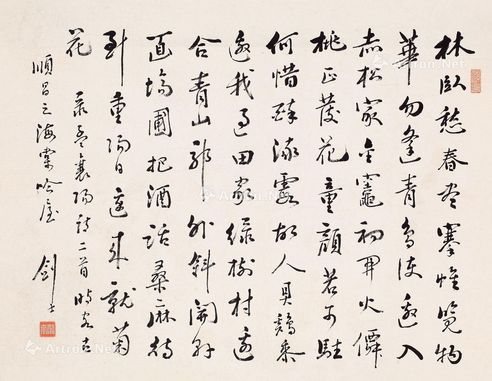 林臥愁春盡搴帷覽物
華忽逢青鳥使邀入
赤松家金竈初開火僊
桃正發花童顏若可駐
何惜醉流霞故人具雞黍
邀我至田家綠樹村邊
合青山郭外斜開軒
面場圃把酒話桑麻待
到重陽日還來就菊
花 錄孟襄陽詩二首時客古
順昌之海棠吟屋 劍士
Artron.Net